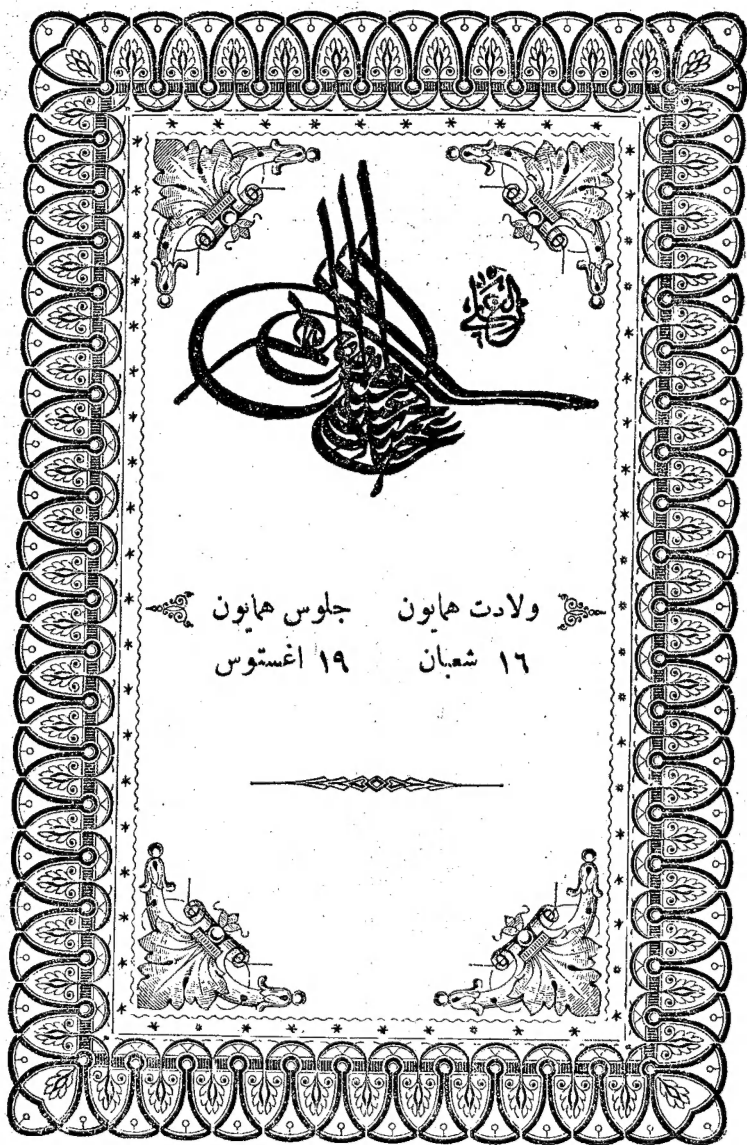 ولادت همايون جلوس همايون
١٦ شعبان ١٩ اغستوس